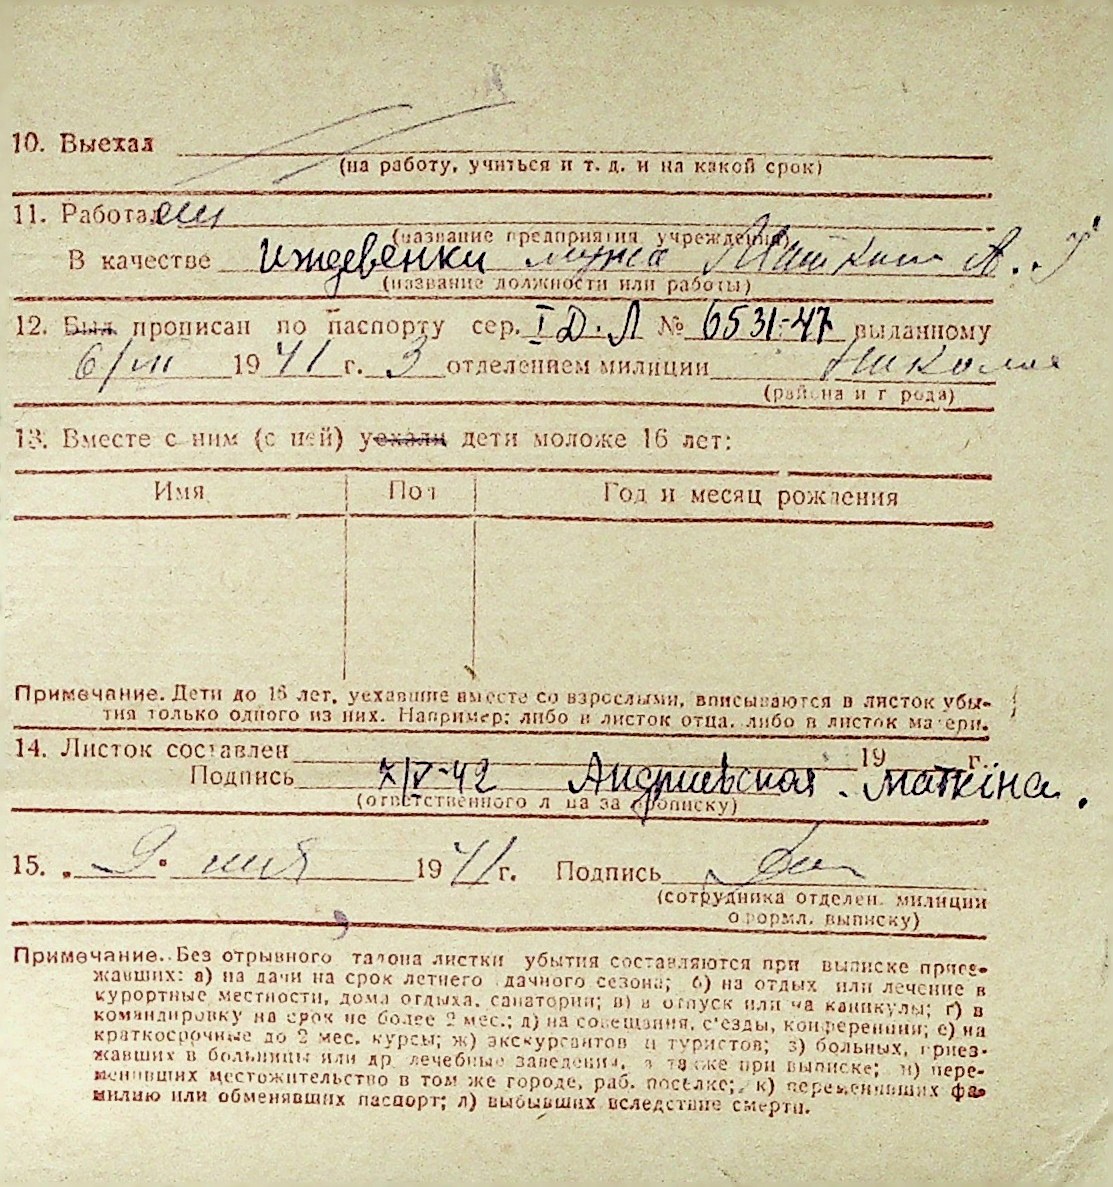 10. Выехал
(на работу, учиться и т. д. и на какой срок)
11. Работал
(название предприятия учреждения)
В качестве иждевенки мужа
(название должности или работы)
12. Был прописан по паспорту сер. I Д. Л № 6531-47 выданному
6/III 1941 г. 3 отделением милиции
(района и г рода)
13. Вместе с ним (с ней) уехали дети моложе 16 лет:
Имя Пол Год и месяц рождения
Примечание. Дети до 16 лет, уехавшие вместе со взрослыми, вписываются в листок убы-
тия только одного из них. Например: либо в листок отца, либо в листок матери.
14. Листок составлен 19 г.
Подпись 7/V-42 Андриевская. Маткіна.
(ответственного л ца за прописку)
15. „ 9. 1941 г. Подпись
(сотрудника отделен. милиции
оформл. выписку)
Примечание. Без отрывного талона листки убытия составляются при выписке приез-
жавших: а) на дачи на срок летнего дачного сезона; б) на отдых или лечение в
курортные местности, дома отдыха, санатории; в) в отпуск или на каникулы; г) в
командировку на срок не более 2 мес.; д) на совещания, с'езды, конференции; е) на
краткосрочные до 2 мес. курсы; ж) экскурсантов и туристов; з) больных, приез-
жавших в больницы или др. лечебные заведения, а также при выписке; и) пере-
менивших местожительство в том же городе, раб. поселке; к) переменивших фа-
милию или обменявших паспорт; л) выбывших вследствие смерти.